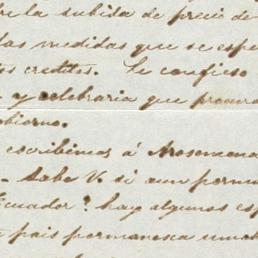 re la subida de precio de
las medidas que se espe
tos creditos. Le confieso
y celebraria que procura
obierno.
escribimos á Arosemena
- Sabe V. si aun perma
Ecuador? hay algunos esp
pais permanezca much